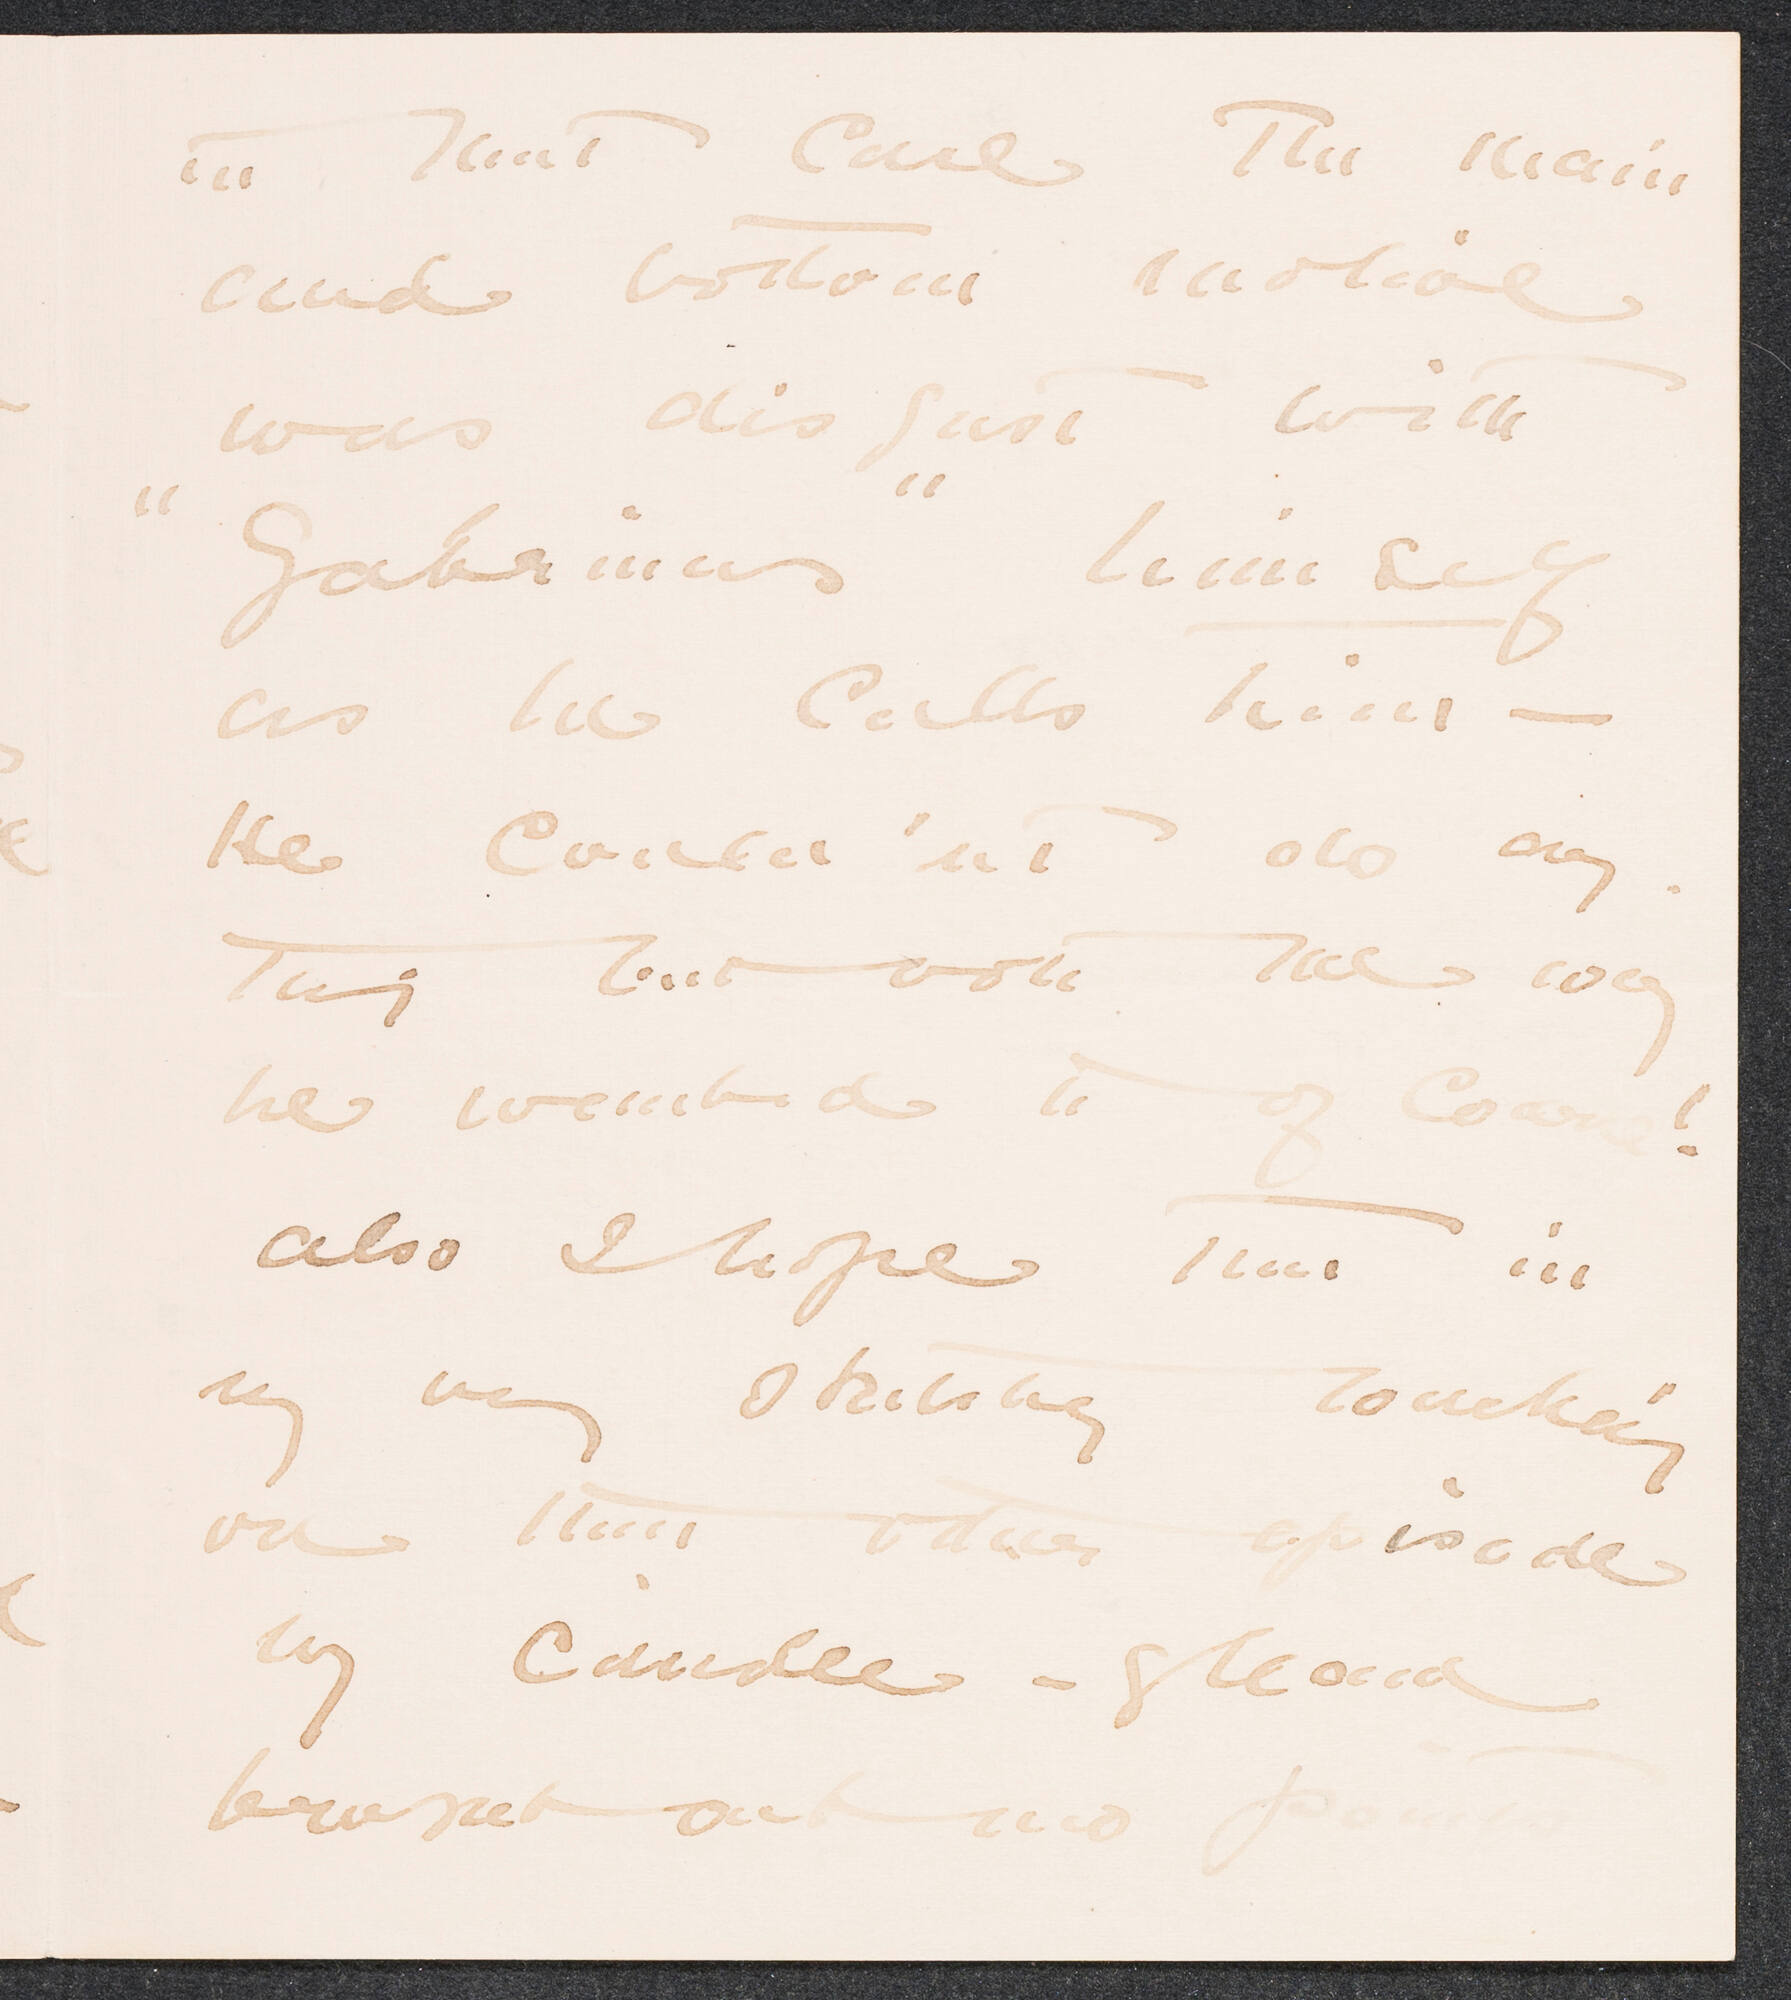 in that case the main
and bottom motive
was disgust with
"Gabrinus" himself
as he calls him —
He could'nt do any
thing but vote the way
he wanted to of course!
also I hope that in
my very sketchy touching
on that other episode
my candle-
brought out two points